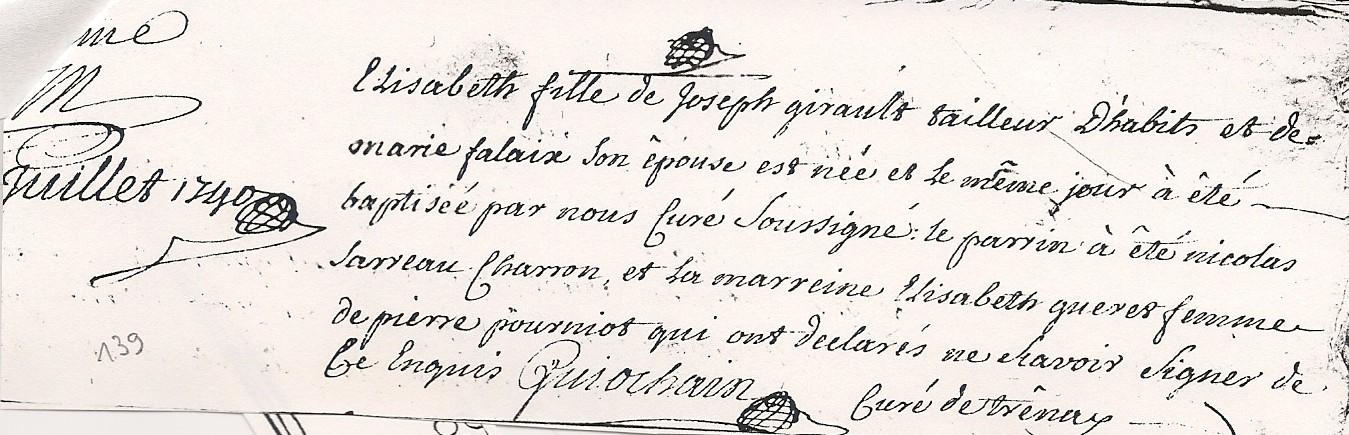 me
M
juillet 1740
139
Elisabeth fille de Joseph girault tailleur D'habits et de=
marie falaix son êpouse est née et le même jour à êté
baptiséé par nous Curé Soussigné: le parrin à êté nicolas
Sarreau Charron, et la marreine Elisabeth gueret femme
de pierre pourniot qui ont declarés ne scavoir signer de
Ce Enquis Guiochain
Curé de trênay